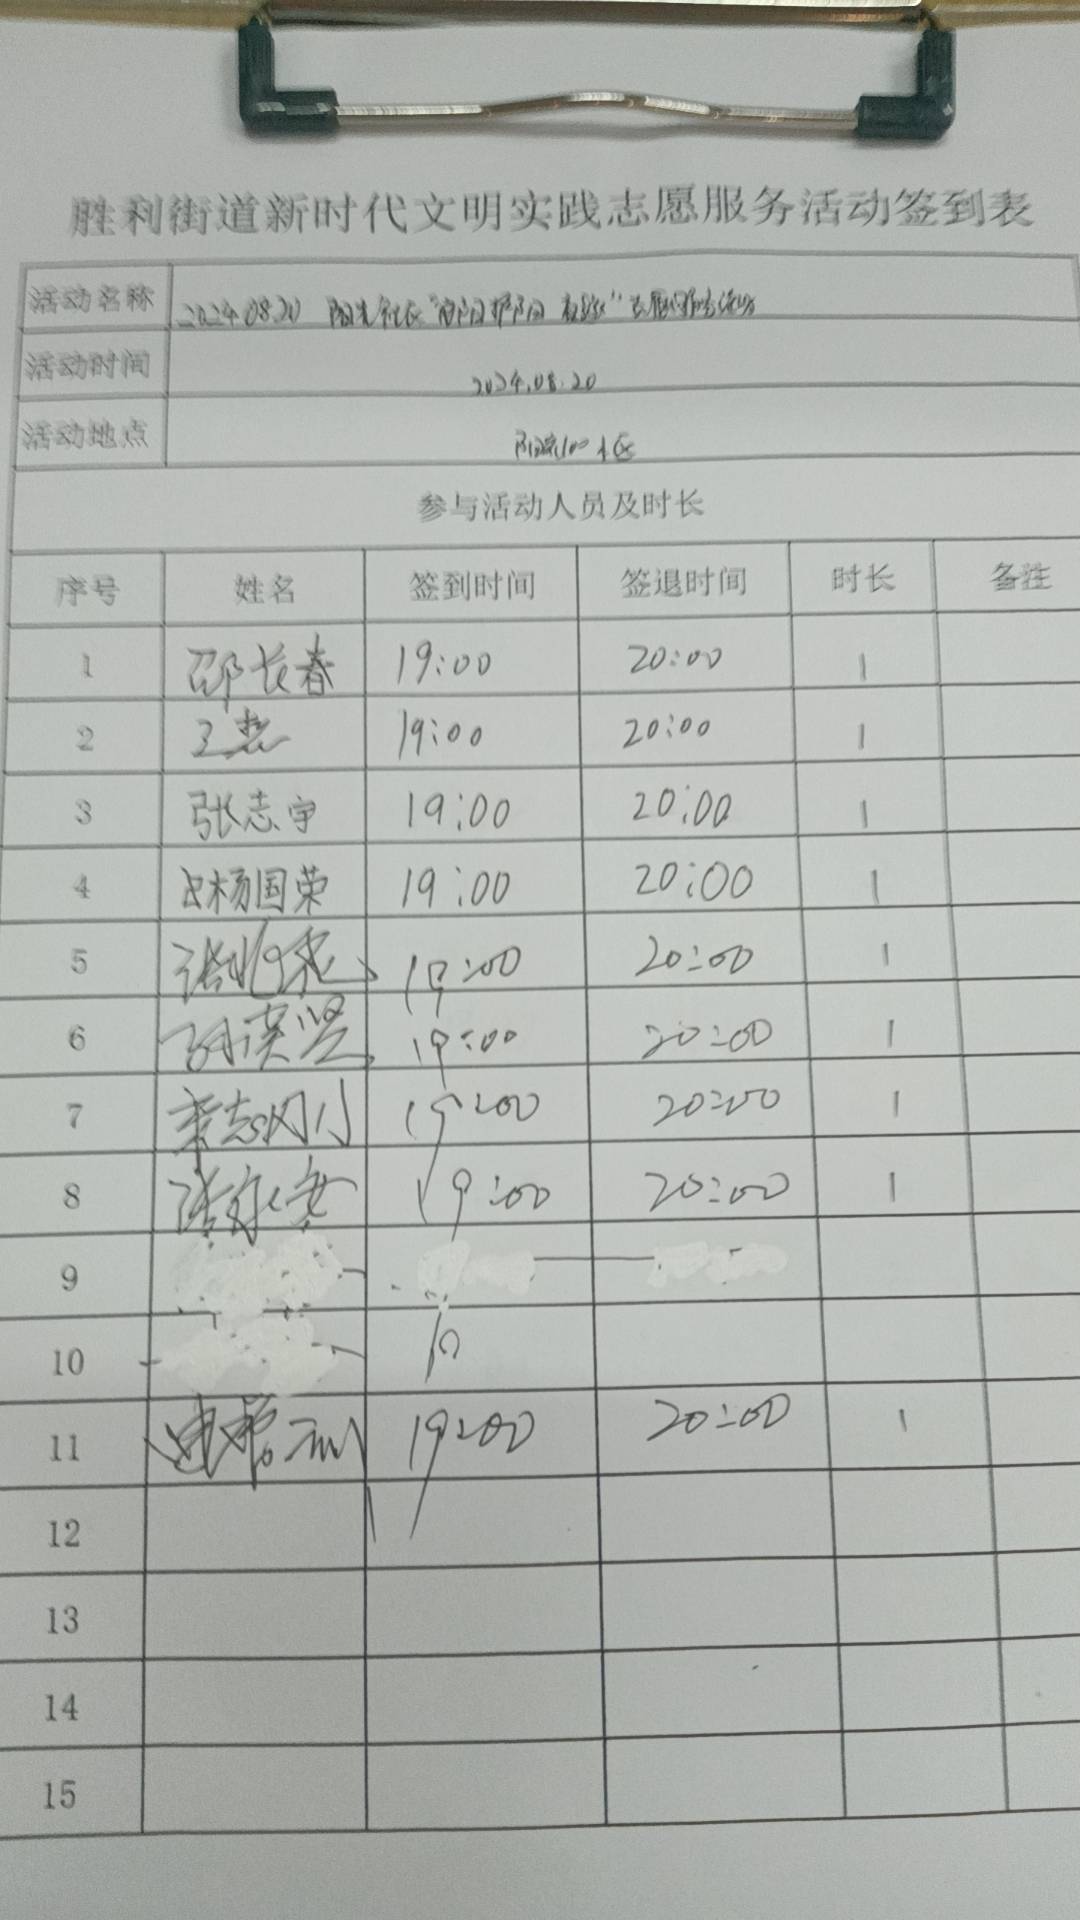 胜利街道新时代文明实践志愿服务活动签到表
活动名称 2024.08.20 阳光社区
活动时间 2024.08.20
活动地点 100小区
参与活动人员及时长
序号 姓名 签到时间 签退时间 时长 备注
1 邵长春 19:00 20:00 1
2 19:00 20:00 1
3 张志宇 19:00 20:00 1
4 杨国荣 19:00 20:00 1
5 19:00 20:00 1
6 19:00 20:00 1
7 19:00 20:00 1
8 张永安 19:00 20:00 1
9
10
11 19:00 20:00 1
12
13
14
15